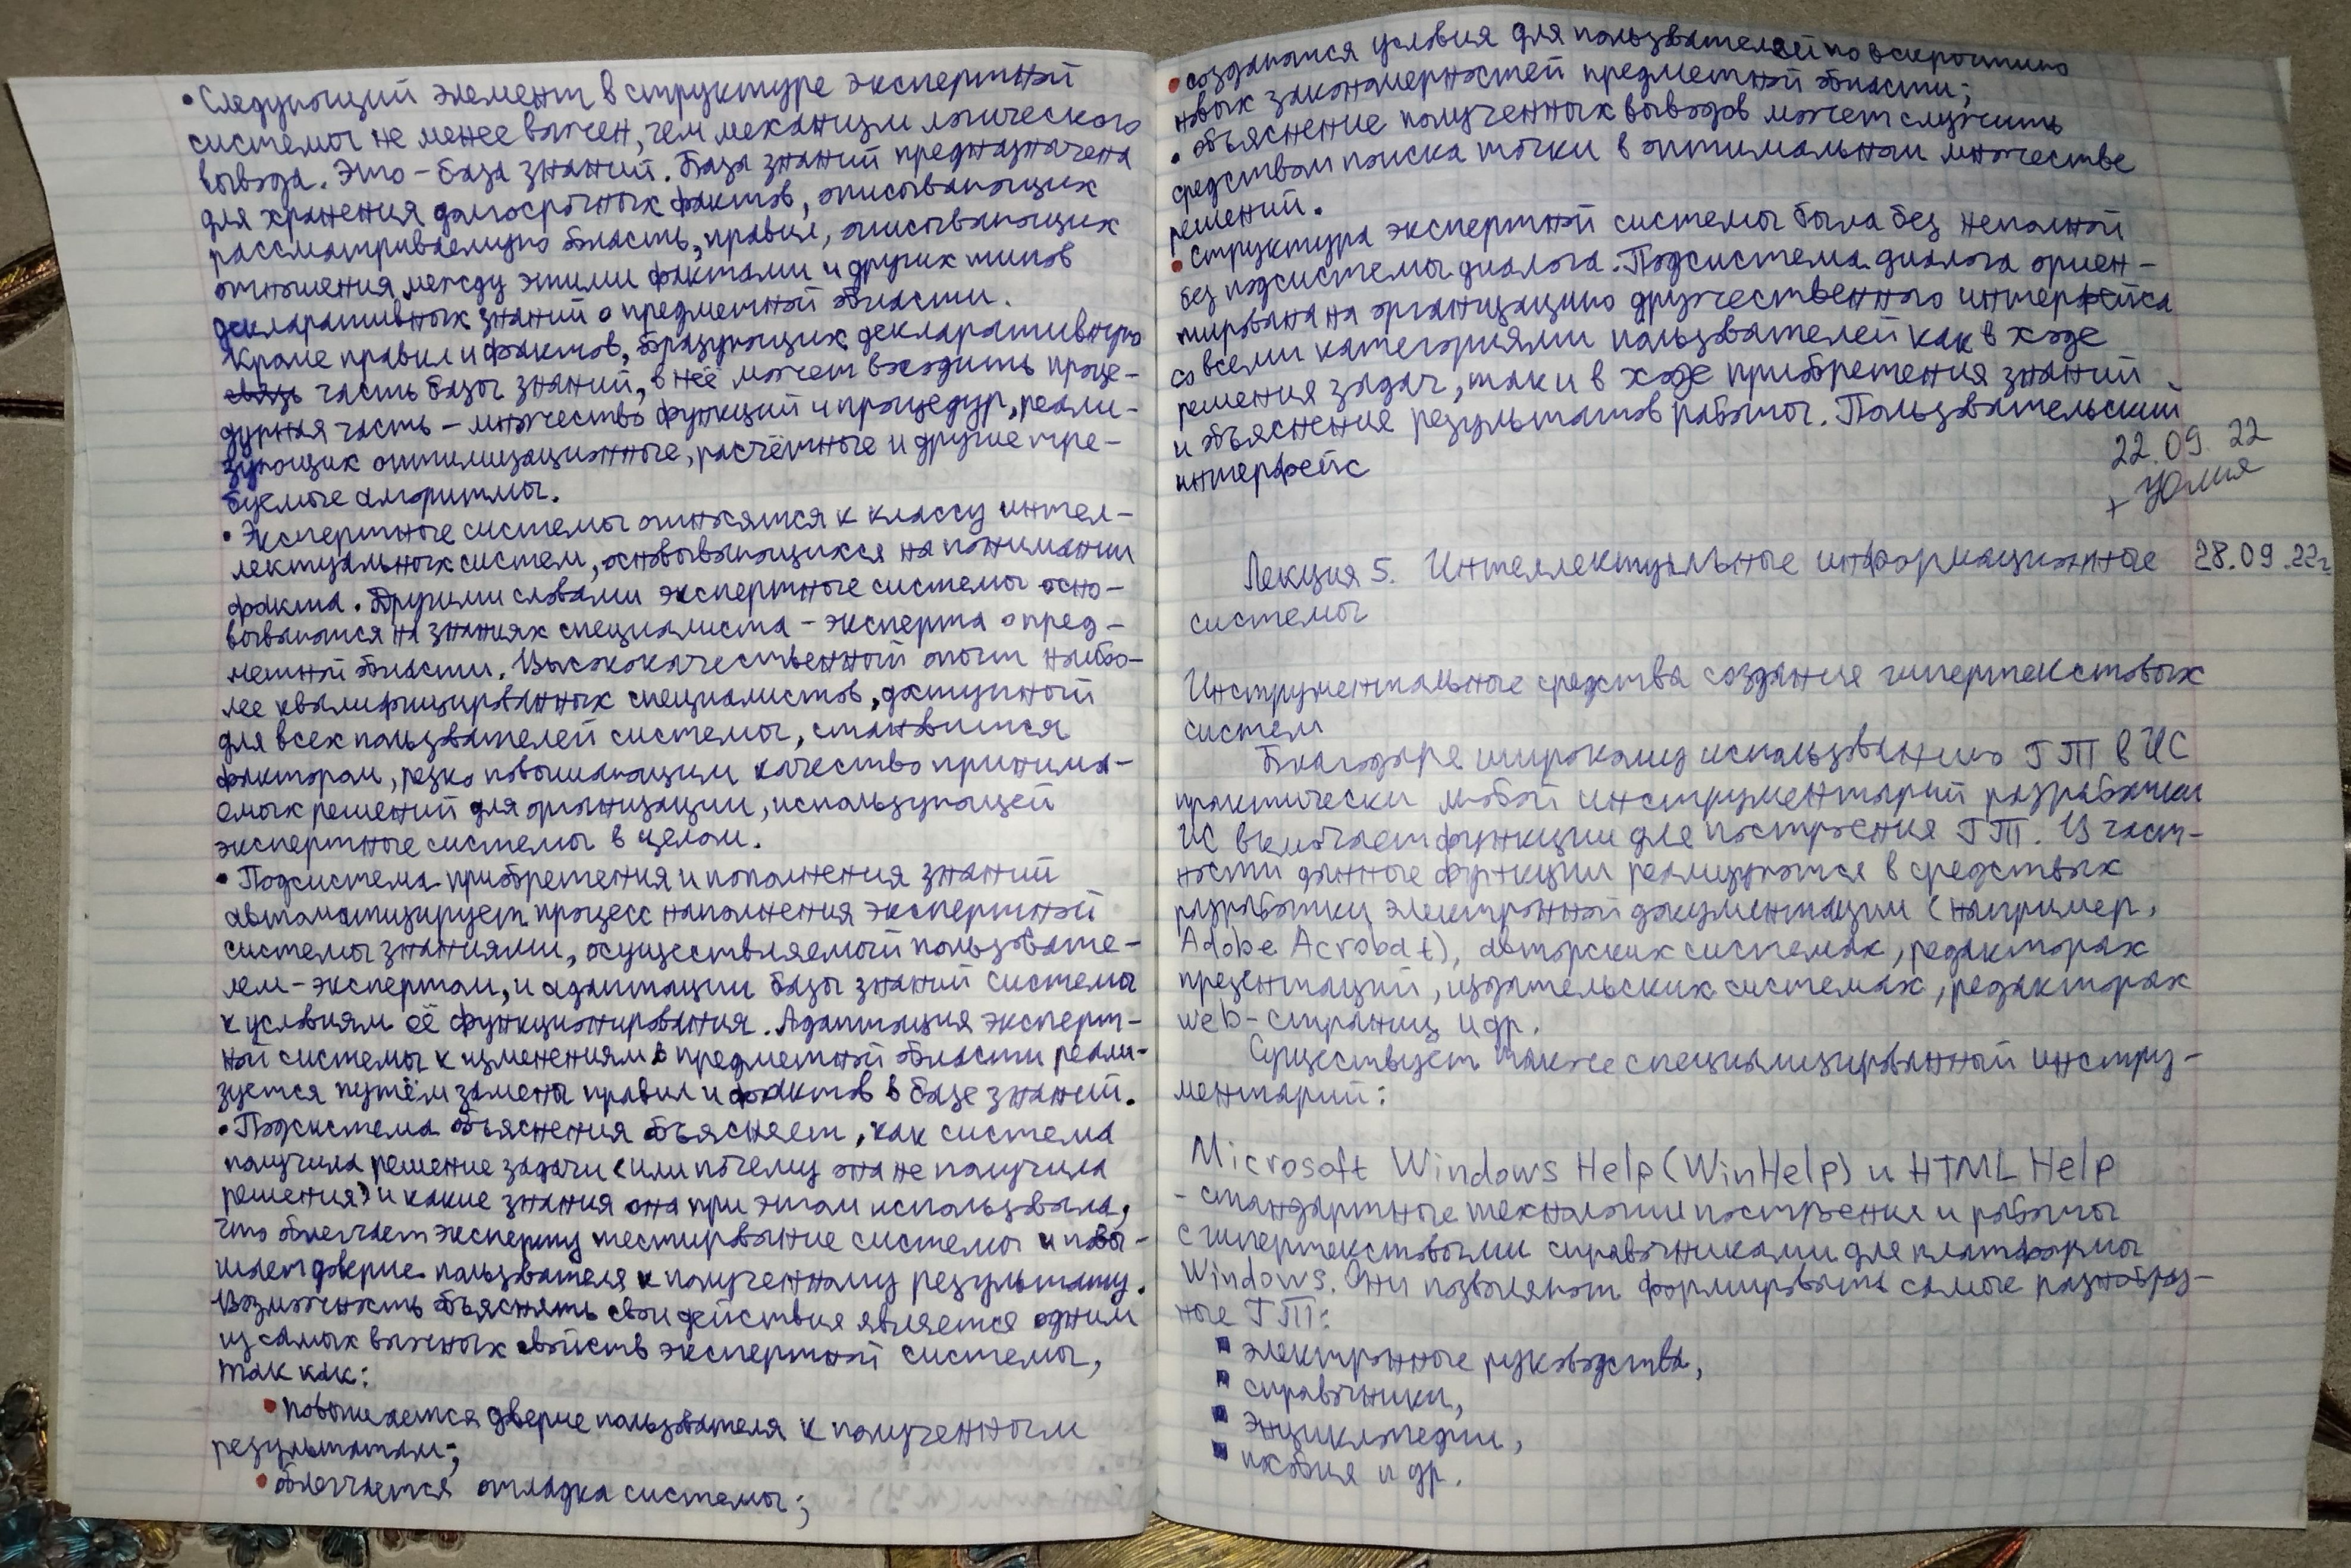 • Следующий элемент в структуре экспертной
системы не менее важен, чем механизм логического
вывода. Это - база знаний. База знаний предназначена
для хранения долгосрочных фактов, описывающих
рассматриваемую область, правил, описывающих
отношения между этими фактами и других типов
декларативных знаний о предметной области.
Кроме правил и фактов, образующих декларативную
часть базы знаний, в неё может входить проце-
дурная часть - множество функций и процедур, реали-
зующих оптимизационные, расчётные и другие тре-
буемые алгоритмы.
• Экспертные системы относятся к классу интел-
лектуальных систем, основывающихся на понимании
факта. Другими словами экспертные системы осно-
вываются на знаниях специалиста - эксперта о пред-
метной области. Высококачественный опыт наибо-
лее квалифицированных специалистов, доступный
для всех пользователей системы, становится
фактором, резко повышающим качество принима-
емых решений для организации, использующей
экспертные системы в целом.
• Подсистема приобретения и пополнения знаний
автоматизирует процесс наполнения экспертной
системы знаниями, осуществляемый пользовате-
лем-экспертом, и адаптации базы знаний системы
к условиям её функционирования. Адаптация эксперт-
ной системы к изменениям в предметной области реали-
зуется путём замены правил и фактов в базе знаний.
• Подсистема объяснения объясняет, как система
получила решение задачи (или почему она не получила
решения) и какие знания она при этом использовала,
что облегчает эксперту тестирование системы и повы-
шает доверие пользователя к полученному результату.
Возможность объяснять свои действия является одним
из самых важных свойств экспертной системы,
так как:
• повышается доверие пользователя к полученным
результатам;
• облегчается отладка системы;
• создаются условия для пользователей по вскрытию
новых закономерностей предметной области;
• объяснение полученных выводов может служить
средством поиска точки в оптимальном множестве
решений.
• Структура экспертной системы была без неполной
без подсистемы диалога. Подсистема диалога ориен-
тирована на организацию дружественного интерфейса
со всеми категориями пользователей как в ходе
решения задач, так и в ходе приобретения знаний
и объяснение результатов работы. Пользовательский
интерфейс
22.09.22
+ Юлия
Лекция 5. Интеллектуальные информационные 28.09.22г
системы
Инструментальные средства создания гипертекстовых
систем
Благодаря широкому использованию ГТ в ИС
практически любой инструментарий разработки
ИС включает функции для построения ГТ. В част-
ности данные функции реализуются в средствах
разработки электронной документации (например,
Adobe Acrobat), авторских системах, редакторах
презентаций, издательских системах, редакторах
web-страниц и др.
Существует также специализированный инстру-
ментарий:
Microsoft Windows Help (WinHelp) и HTML Help
- стандартные технологии построения и работы
с гипертекстовыми справочниками для платформы
Windows. Они позволяют формировать самые разнообраз-
ные ГТ:
▪ электронные руководства,
▪ справочники,
▪ энциклопедии,
▪ пособия и др.